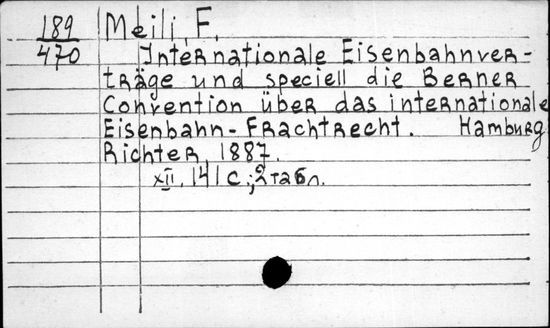 189
470
Meili, F.
Internationale Eisenbahnver-
träge und speciell die Berner
Convention über das internationale
Eisenbahn-Frachtrecht. Hamburg
Richter, 1887.
XII, 141 с.; 2 табл.